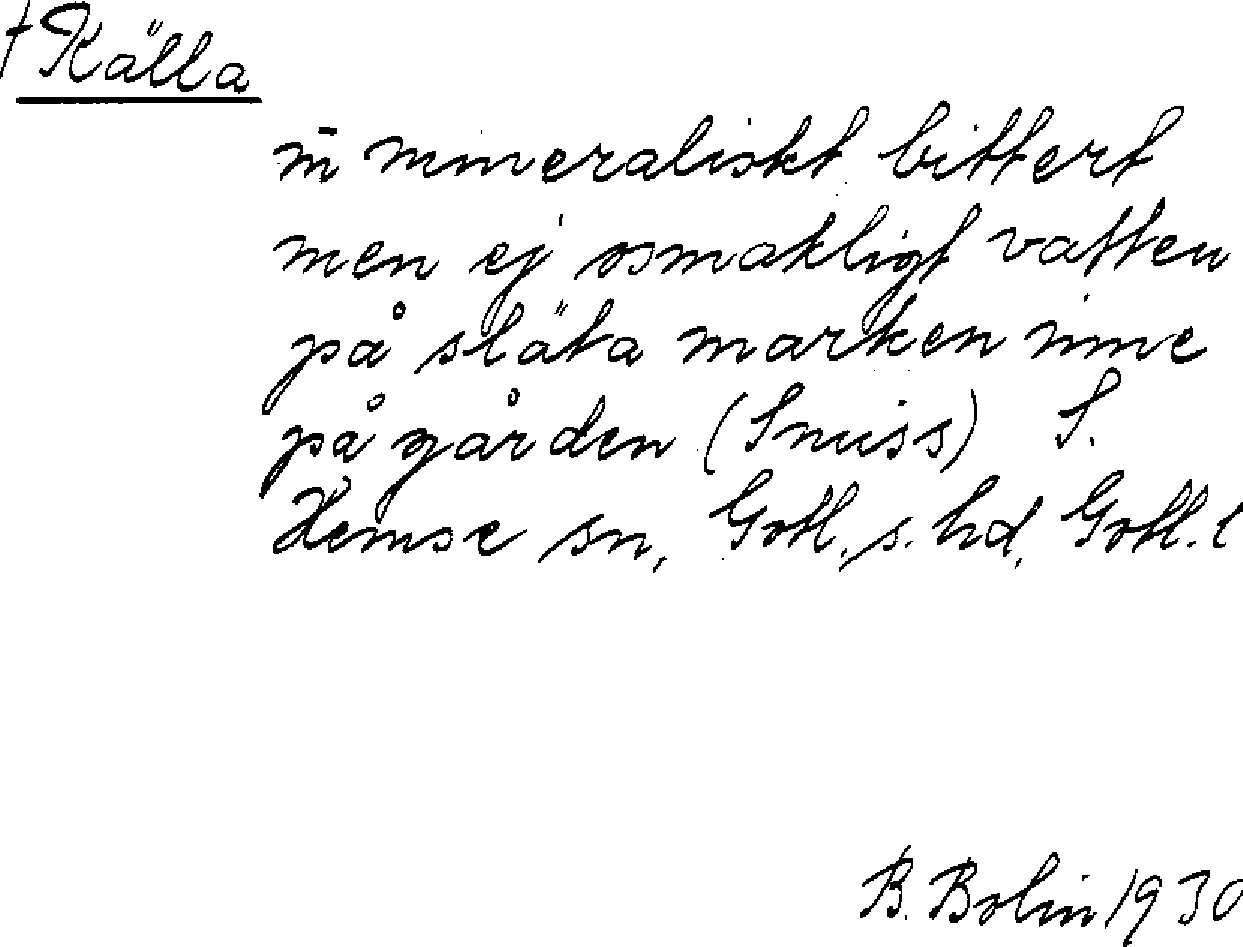 † Källa
m̄ mineraliskt bittert
men ej osmakligt vatten
på släta marken inne
på gården (Snuss) S.
Hemse sn, Gotl. s. hd, Gotl. l
B. Bolin 1930